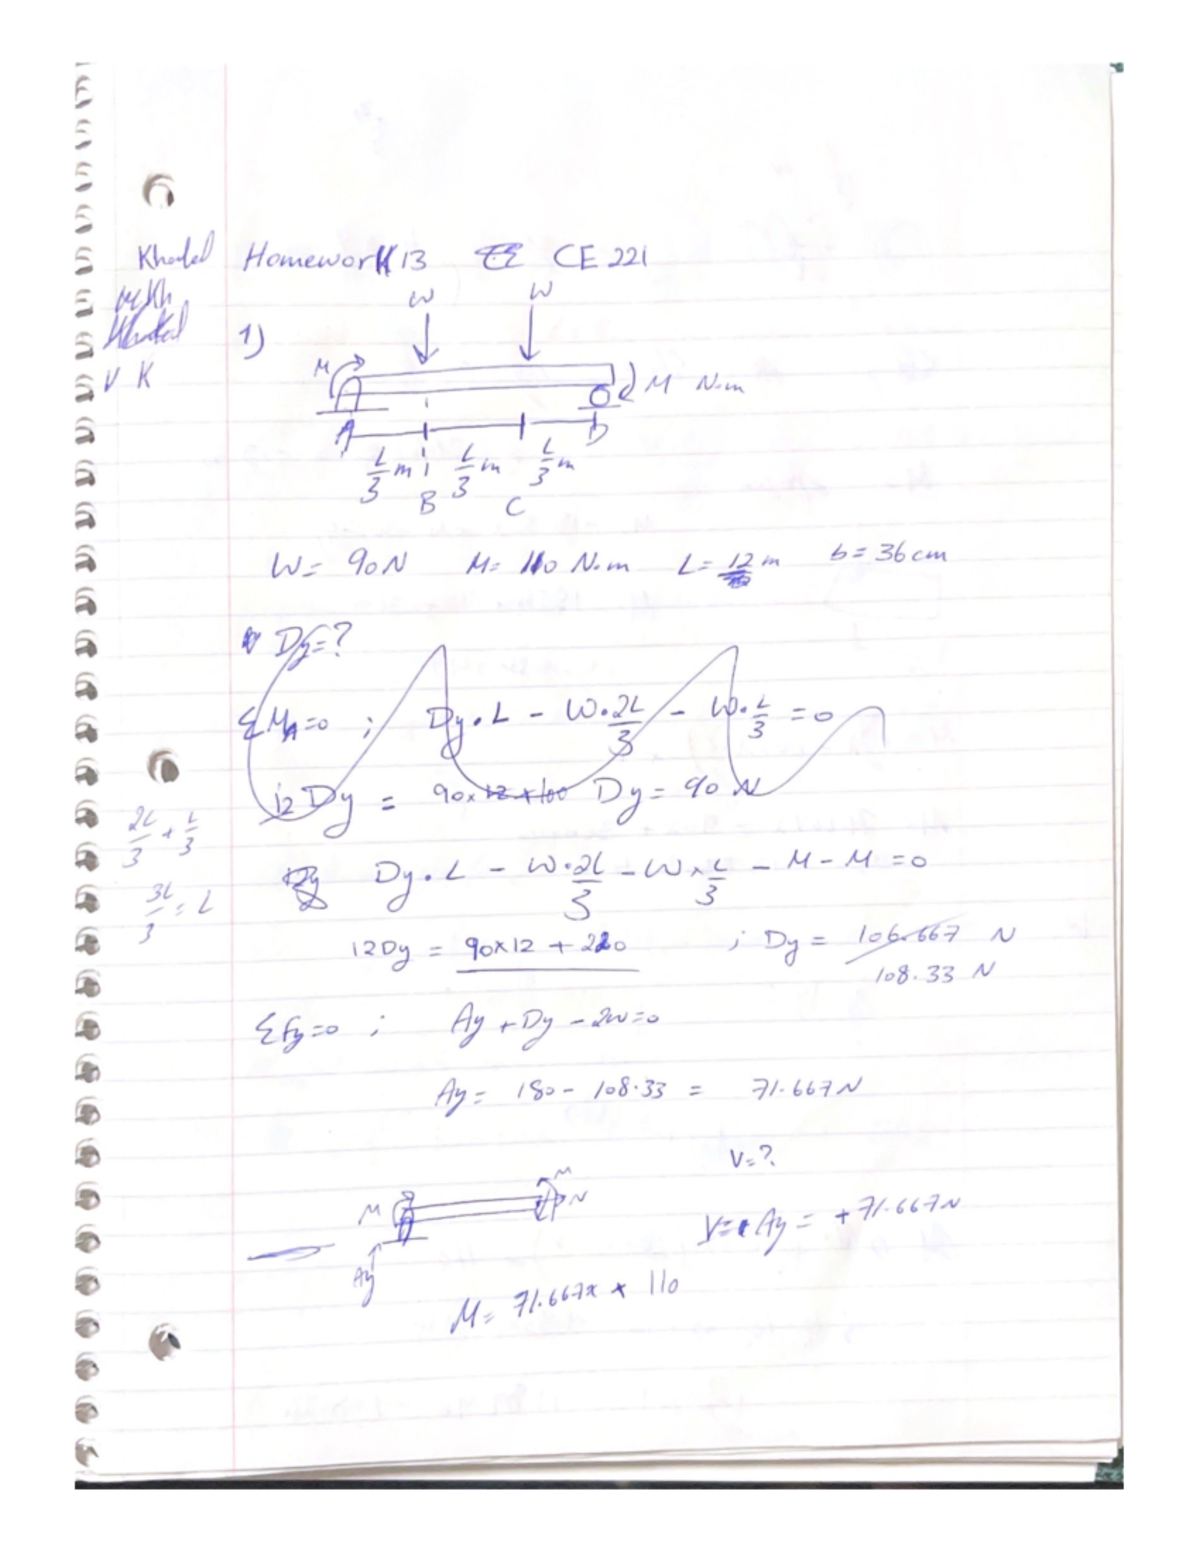 Khaled Homework 13 CE 221
V K
1)
W W
M M N.m
A D
L/3 m L/3 m L/3 m
B C
W = 90N M = 110 N.m L = 12 m b = 36 cm
Dy = ?
ΣMA=0 ; Dy . L - W . 2L/3 - W . L/3 = 0
12 Dy = 90 x 12 + 100 Dy = 90 N
2L/3 + L/3
3L/3 = L
Dy Dy . L - W . 2L/3 - W x L/3 - M - M = 0
12Dy = 90x12 + 220 ; Dy = 106.667 N
108.33 N
Σfy=0 ; Ay + Dy - 2w=0
Ay = 180 - 108.33 = 71.667N
V=?
M M N
Ay
V= Ay = +71.667N
M= 71.667x x 110